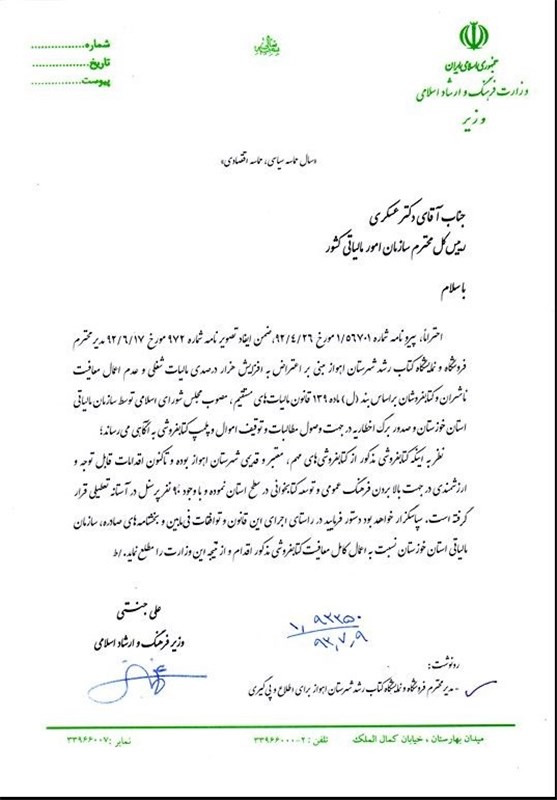 جمهوری اسلامی ایران
وزارت فرهنگ و ارشاد اسلامی
وزیر
بسمه تعالی
شماره................
تاریخ................
پیوست................
«سال حماسه سیاسی، حماسه اقتصادی»
جناب آقای دکتر عسکری
رییس کل محترم سازمان امور مالیاتی کشور
با سلام
احتراماً، پیرو نامه شماره ۱/۵۶۷۰۱ مورخ ۹۲/۴/۲۶، ضمن ایفاد تصویر نامه شماره ۹۷۲ مورخ ۹۲/۶/۱۷ مدیر محترم
فروشگاه و نمایشگاه کتاب رشد شهرستان اهواز مبنی بر اعتراض به افزایش هزار درصدی مالیات شغلی و عدم اعمال معافیت
ناشران و کتابفروشان براساس بند (ل) ماده ۱۳۹ قانون مالیات‌های مستقیم، مصوب مجلس شورای اسلامی توسط سازمان مالیاتی
استان خوزستان و صدور برگ اخطاریه در جهت وصول مطالبات و توقیف اموال و پلمپ کتابفروشی به آگاهی می‌رساند؛
نظر به اینکه کتابفروشی مذکور از کتابفروشی‌های مهم، معتبر و قدیمی شهرستان اهواز بوده و تاکنون اقدامات قابل توجه و
ارزشمندی در جهت بالا بردن فرهنگ عمومی و توسعه کتابخوانی در سطح استان نموده و با وجود ۹۰ نفر پرسنل در آستانه تعطیلی قرار
گرفته است. سپاسگزار خواهد بود دستور فرمایید در راستای اجرای این قانون و توافقات فی‌مابین و بخشنامه‌های صادره، سازمان
مالیاتی استان خوزستان نسبت به اعمال کامل معافیت کتابفروشی مذکور اقدام و از نتیجه این وزارت را مطلع نماید. /ط
علی جنتی
وزیر فرهنگ و ارشاد اسلامی
۱,۹۲۲۵۰
۹۲,۷,۹
رونوشت:
- مدیر محترم فروشگاه و نمایشگاه کتاب رشد شهرستان اهواز برای اطلاع و پی‌گیری
میدان بهارستان ، خیابان کمال الملک تلفن : ۲-۳۳۹۶۶۰۰۰ نمابر : ۳۳۹۶۶۰۰۷